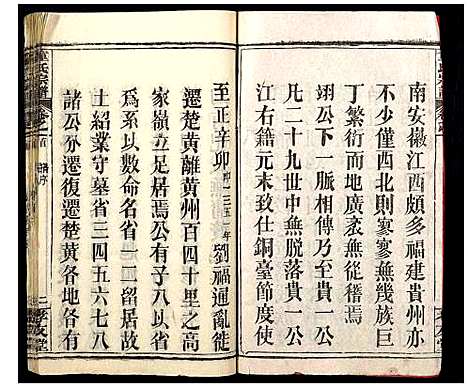 南安徽江西頗多福建貴州亦
不少僅西北則寥寥無幾族巨
丁繁衍而地廣袤無從稽焉
翊公下一脈相傳乃至貞一公
凡二十九世中無脱落貞一公
江右籍元末致仕銅臺節度使
至正辛卯
即一三五一年
劉福通亂徙
遷楚黃離黃州百四十里之高
家嶺上足居焉公有子八以省
為系以數命名省一二留居故
土紹業守墓省三四五六七八
諸公亦遷復遷楚黃各地各有
氏宗譜
卷之首
譜序
二
友堂